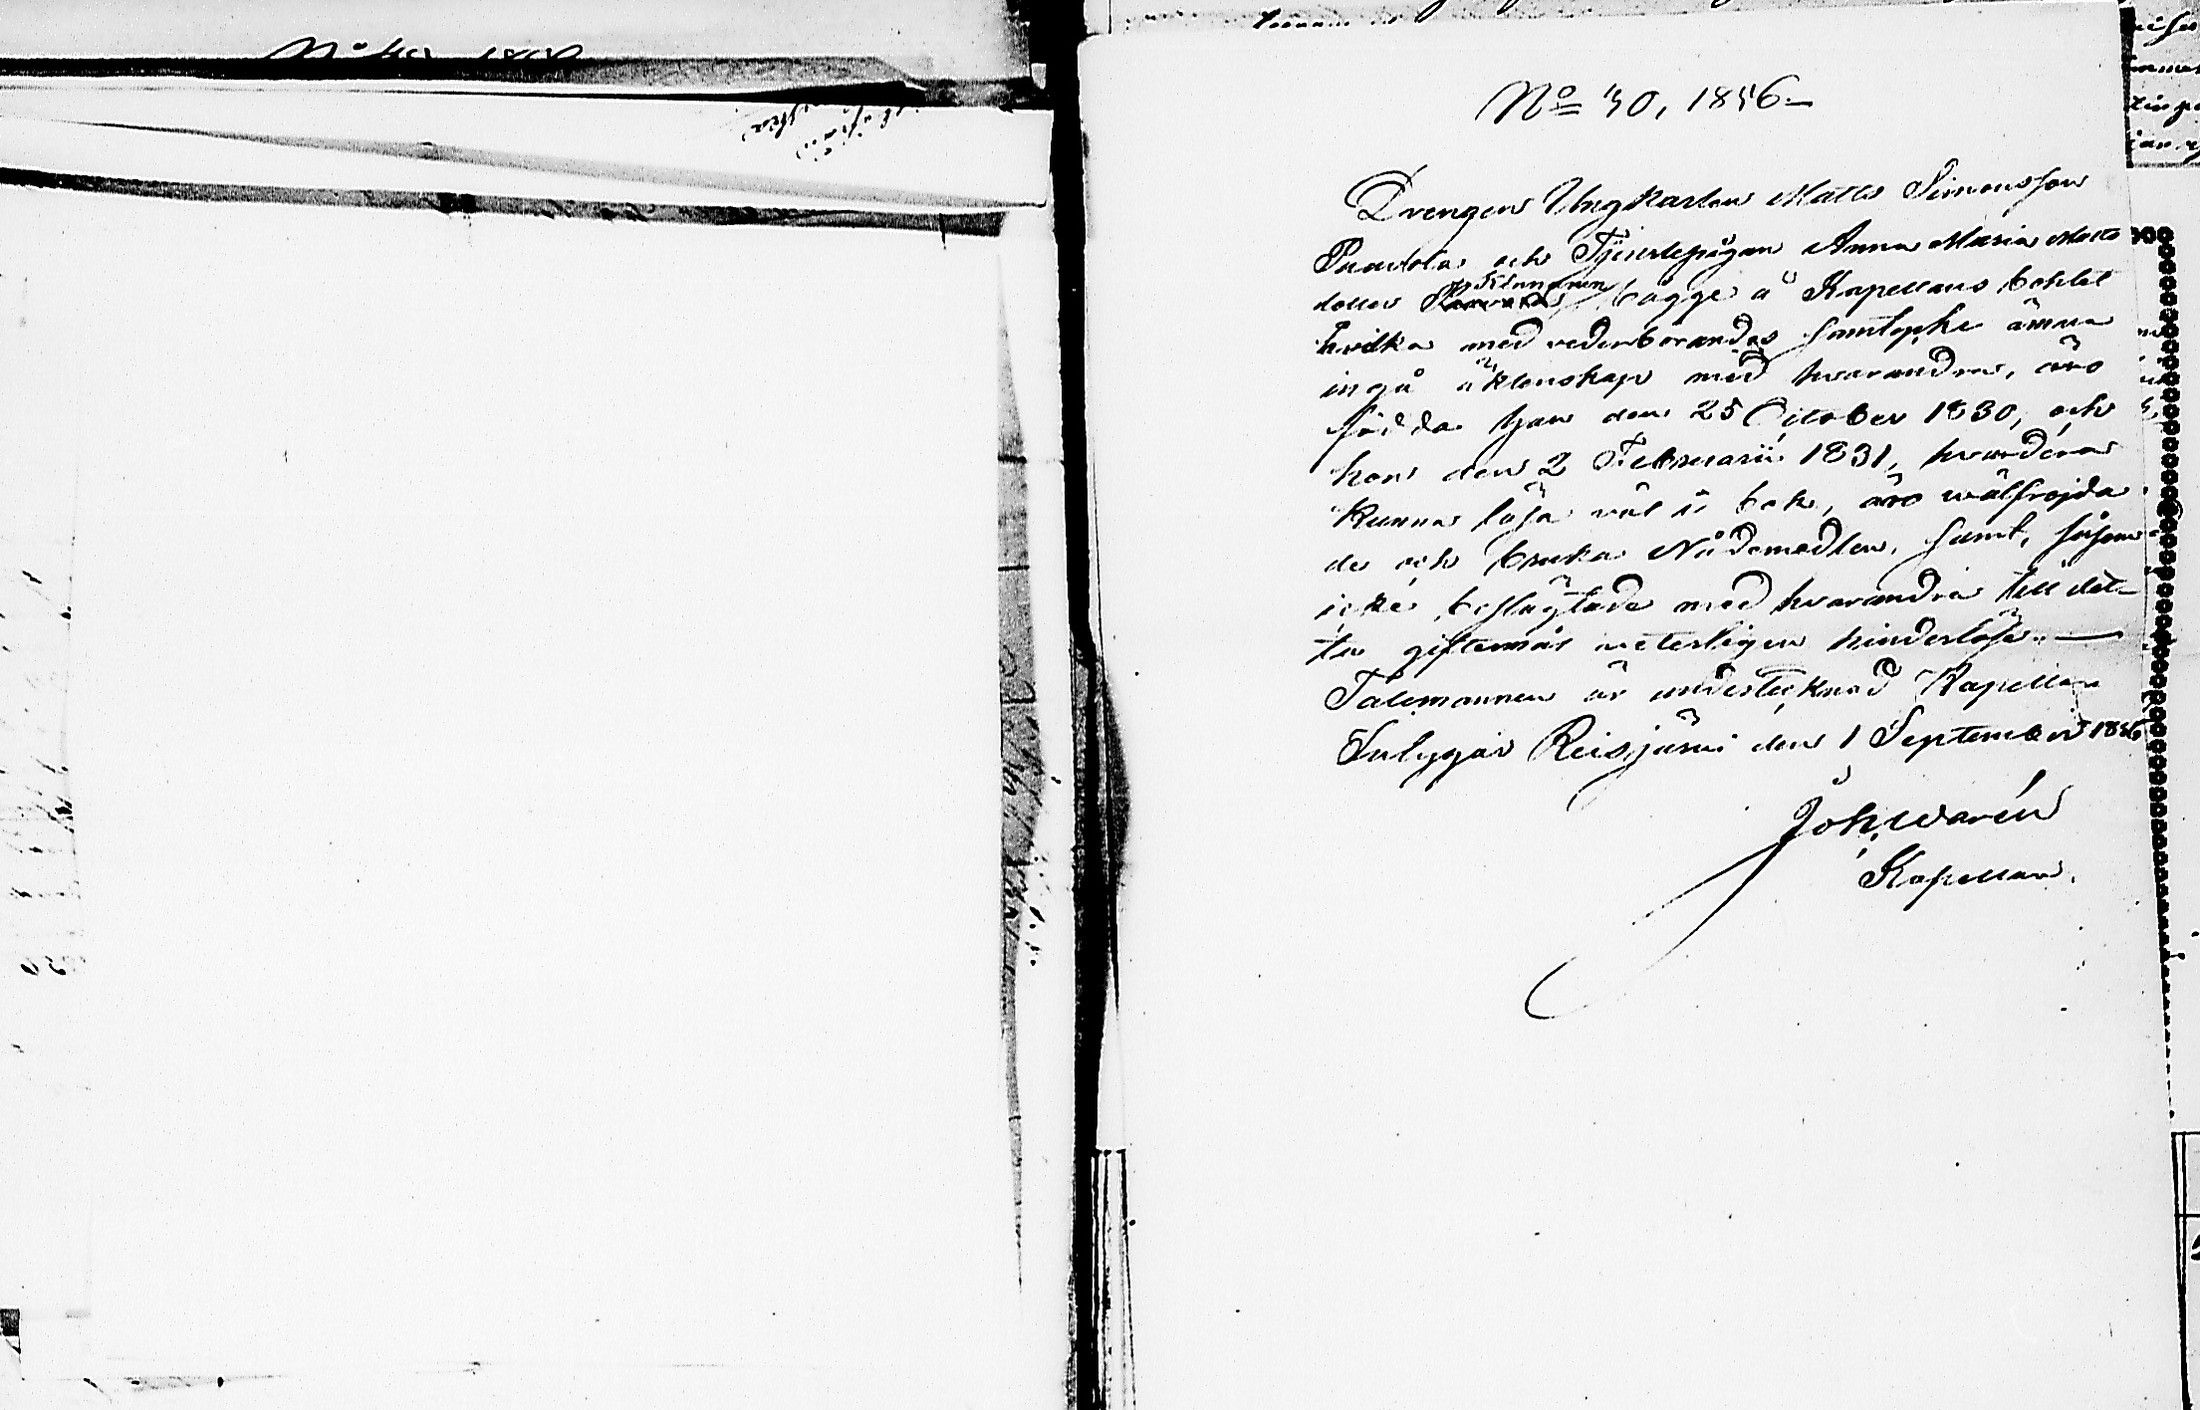 No 40, 1856.
Drengen Ungkarlen Matts Simonsson
och Tjenstepigan Anna Maria Matts
dotter Kinnunen bägge å Kapellans bohlet
hvilka med vederbörandes samtycke ämna
ingå äktenskap med hvarandra, äro
födda han den 25 October 1830, och
hon den 2 Februarii 1831, hvardera
kunna läsa väl i bok, äro wälfrejda
de och bruka Nådemedlen, samt, såsom
icke beslägtade med hvarandra till det-
ta giftermål veterligen hinderlöse. —
Talemannen är undertecknad Kapellan
Intygar Reisjärvi den 1 September 1856
Joh. Warén
Kapellan.